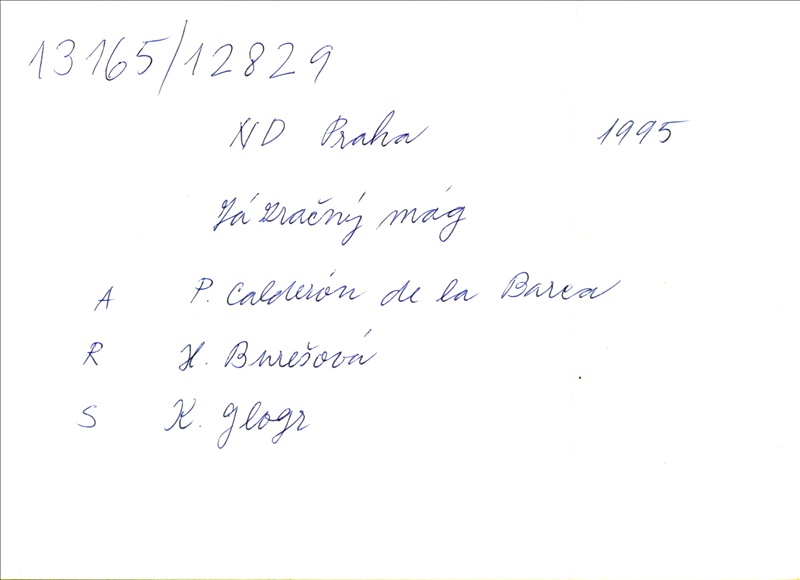 13165/12829
ND Praha 1995
Zázračný mág
A P. Calderón de la Barca
R H. Burešová
S K. Glogr